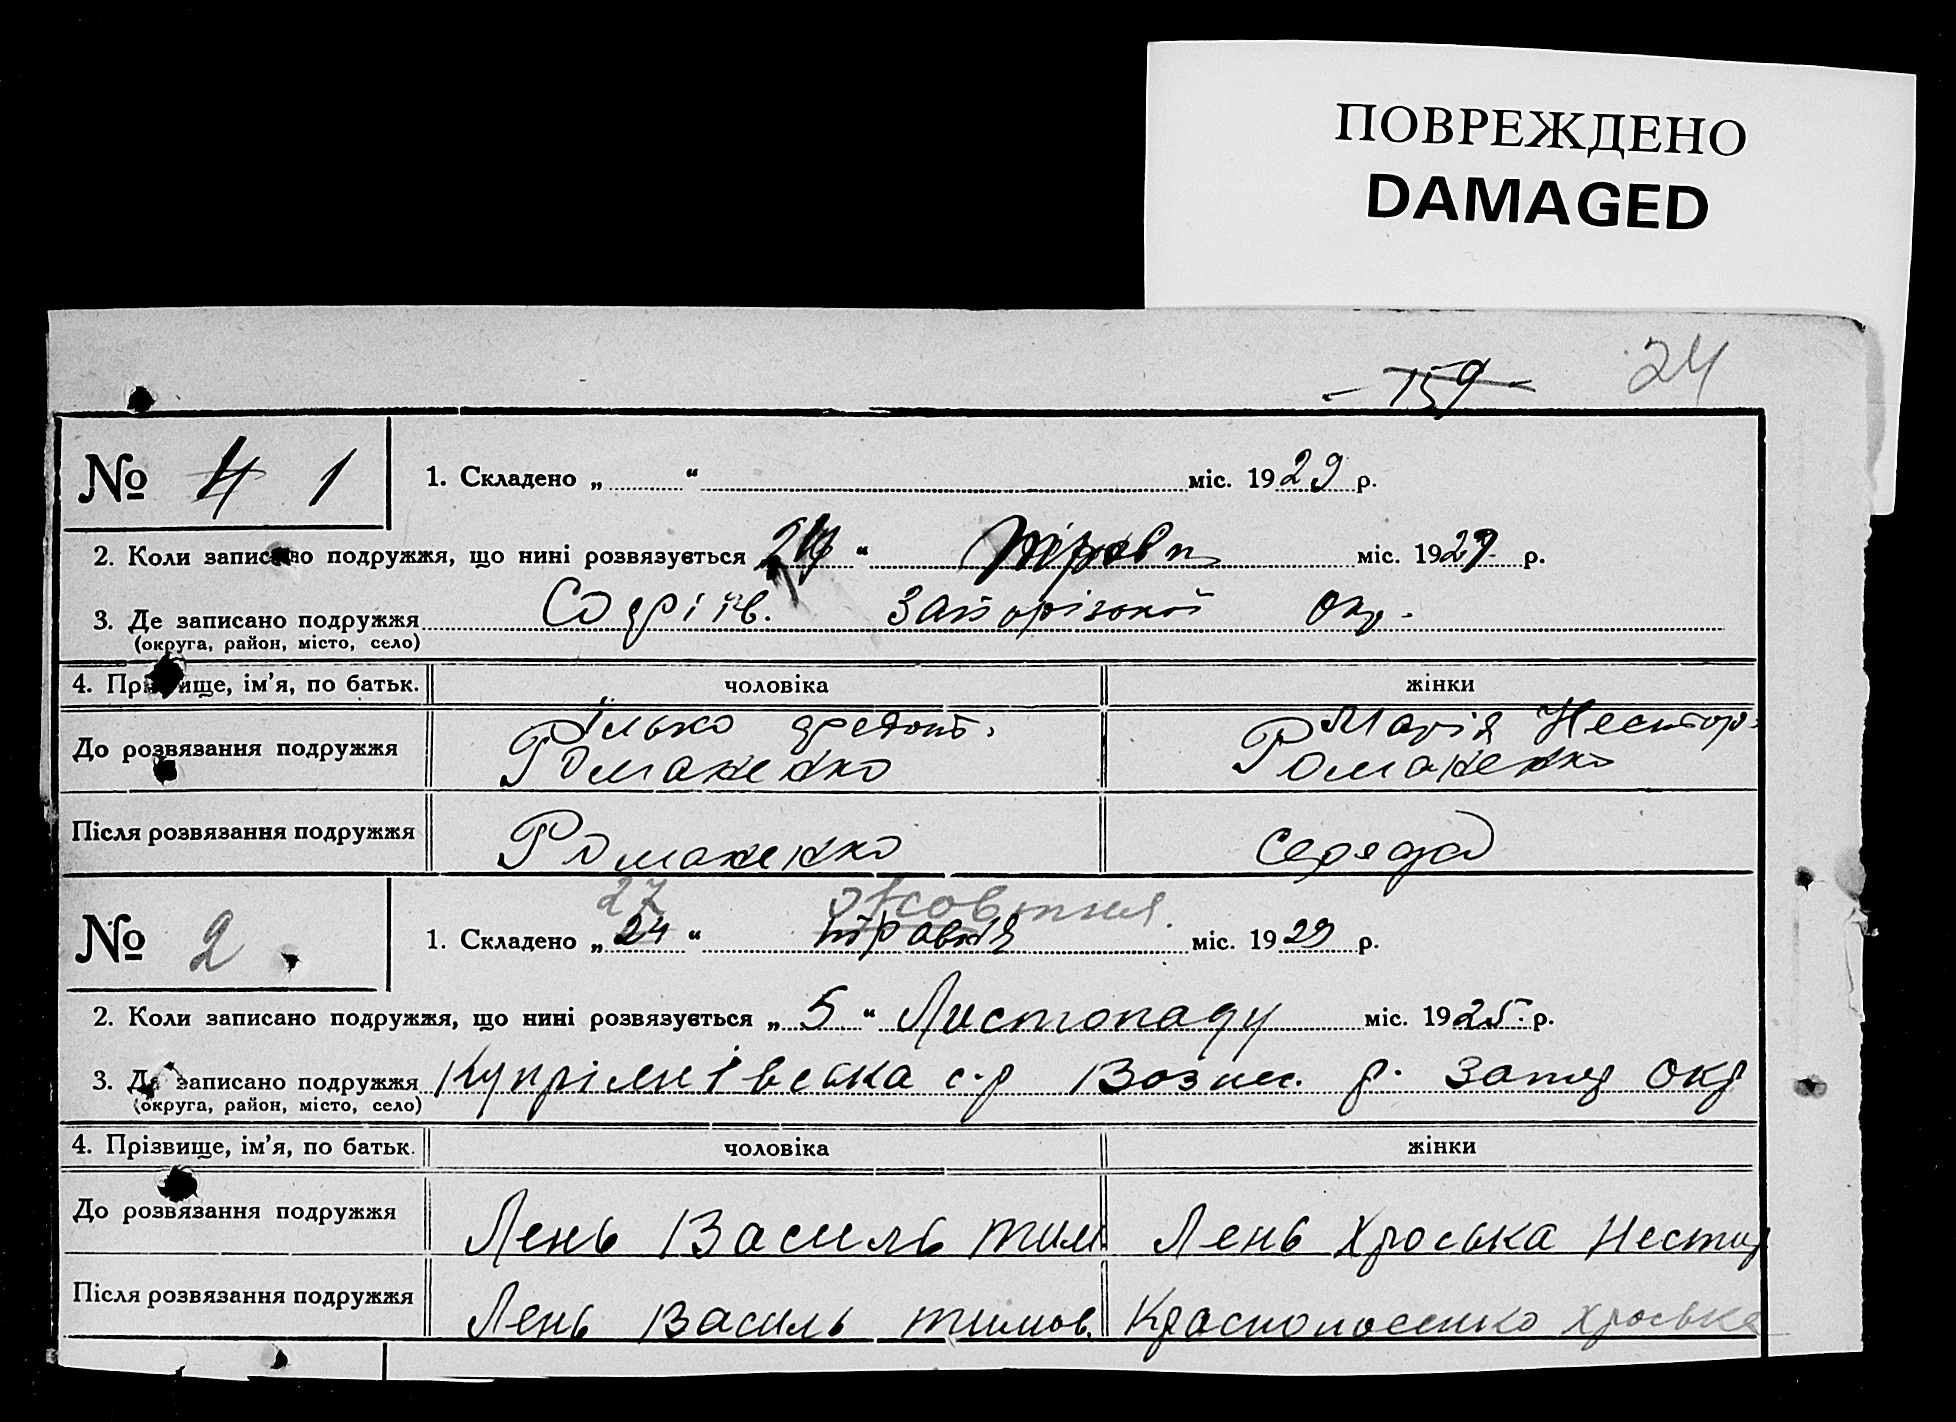 ПОВРЕЖДЕНО
DAMAGED
159
24
№ 4 1
1. Складено „ “ міс. 1929 р.
2. Коли записано подружжя, що нині розвязується “ міс. 1929 р.
3. Де записано подружжя Софіїв. Запорізької окр.
(округа, район, місто, село)
4. Прізвище, ім’я, по батьк. чоловіка жінки
Ілько Марія Нестор.
До розвязання подружжя Романенко Романенко
Після розвязання подружжя Романенко Середа
27 жовтня
№ 2 1. Складено „ 24 “ травня міс. 1929 р.
2. Коли записано подружжя, що нині розвязується „ 5 “ Листопаду міс. 1925 р.
3. Де записано подружжя с.р Возн. р. Запор окр
(округа, район, місто, село)
4. Прізвище, ім’я, по батьк. чоловіка жінки
До розвязання подружжя Лень Василь Тим Лень Хроська Нестор
Після розвязання подружжя Лень Василь Тимов. Хроська